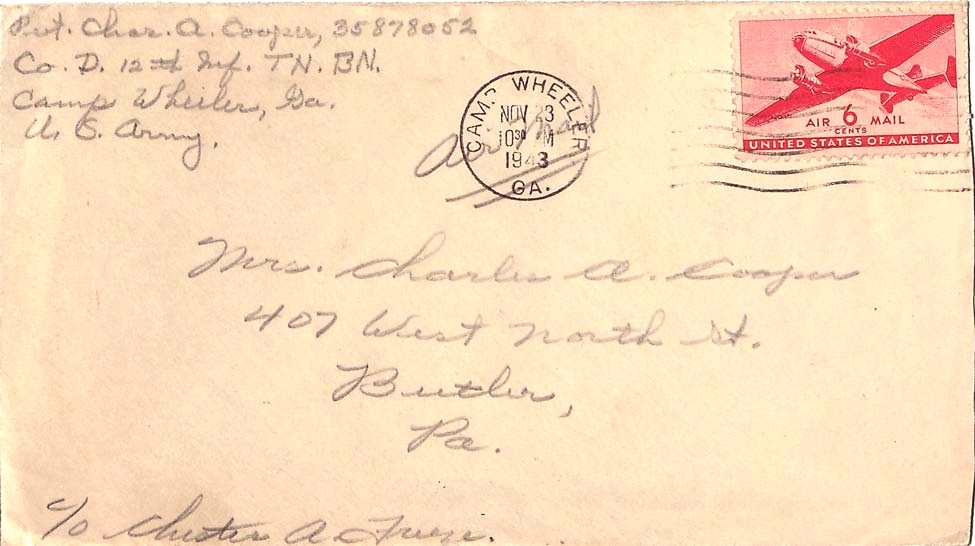 Pvt. Char. A. Cooper, 35878052
Co. D. 12th Inf. TN. BN.
Camp Wheeler, Ga.
U. S. Army.
CAMP WHEELER
NOV 23
1030 M
1943
GA.
Air Mail
AIR 6 MAIL
CENTS
UNITED STATES OF AMERICA
Mrs. Charles A. Cooper
407 West North St.
Butler,
Pa.
c/o Chester A Freeze.